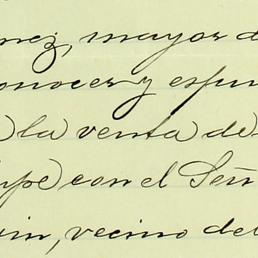 nez, mayor d
onocer y espu
la venta de
upe con el Señ
in, vecino del